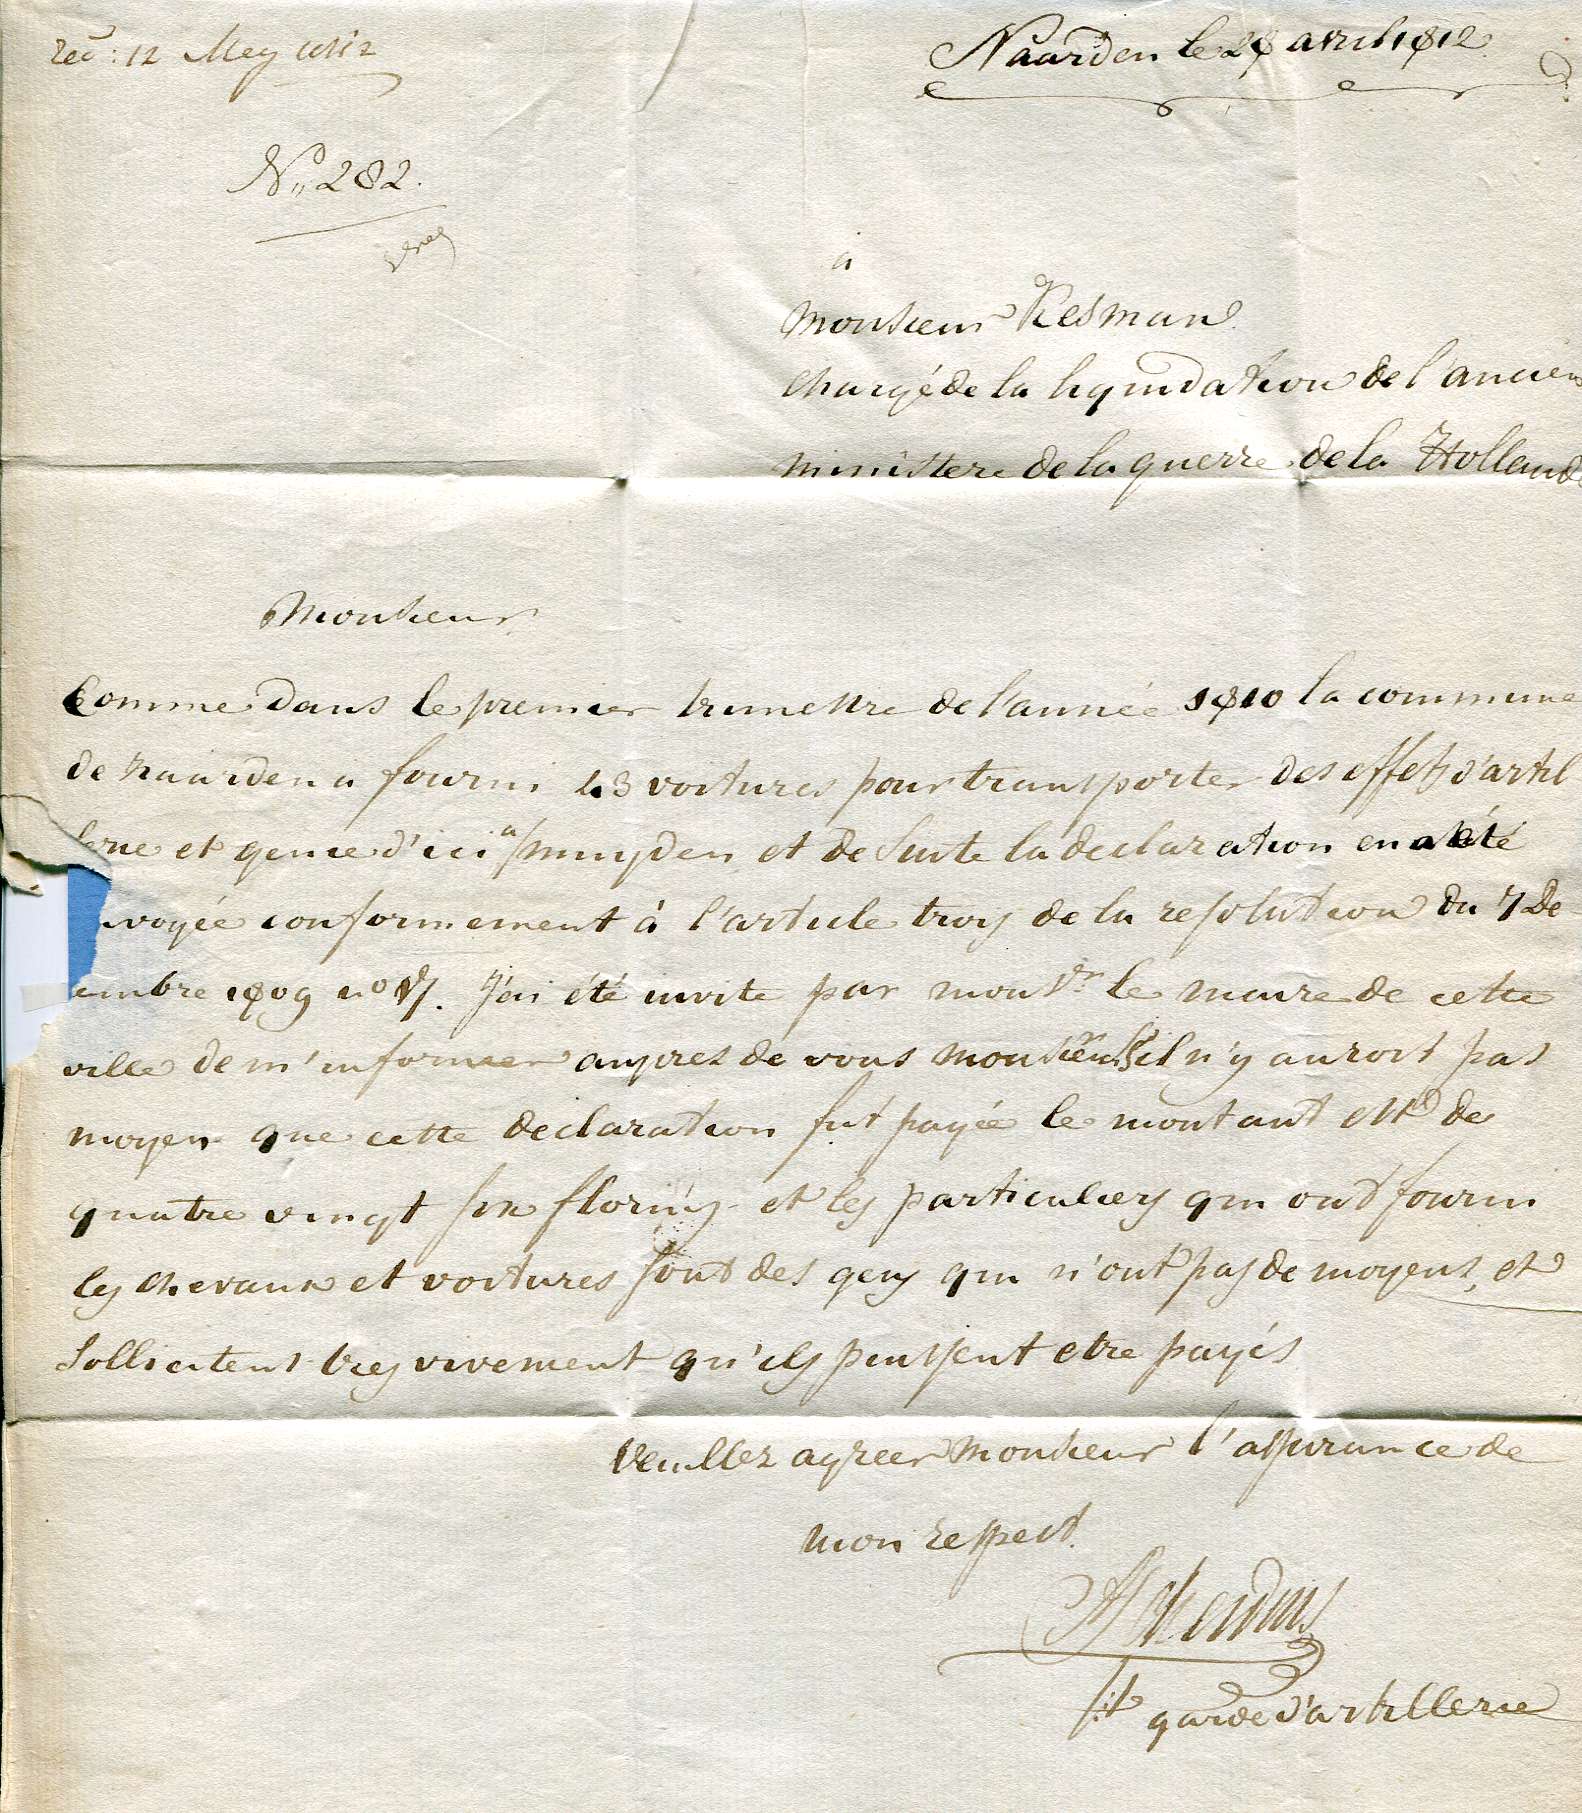 recd: 12 Mey 1812
Naarden le 28 avril 1812
No 282.
a
Monsieur Kesman
chargé de la liquidation de l'ancien
ministere de la guerre de la Hollande
Monsieur
Comme dans le premier trimestre de l'année 1810 la commune
de Naarden a fourni 43 voitures pour transporter des effets d'artil
lerie et genie d'ici a muyden et de suite la declaration en a été
nvoyée conformement à l'article troys de la resolution du 7 De
cembre 1809 no 17. J'ai été invite par monsr le maire de cette
ville de m'informer aupres de vous monsieur s'il n'y auroit pas
moyen que cette declaration fut payée le montant est de
quatre vingt six florins et les particuliers qui ont fourni
les chevaux et voitures sont des gens qui n'ont pas de moyens, et
sollicitent tres vivement qu'ils puissent etre payés
Veuillez agreer Monsieur l'assurance de
mon respect.
garde d'artillerie